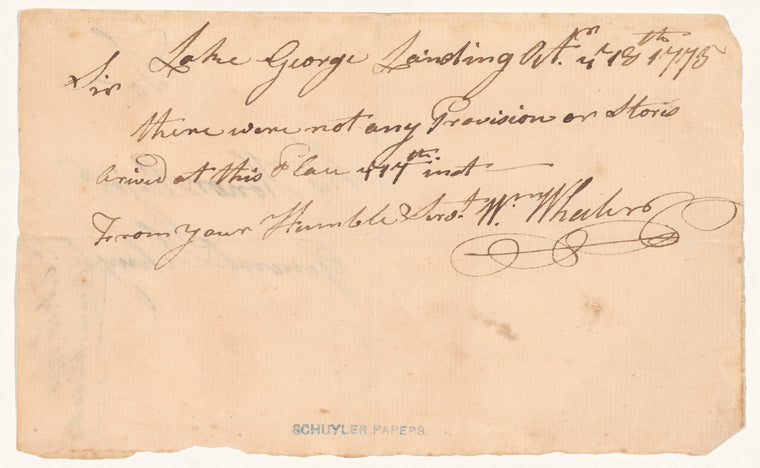 Lake George Landing Octr. ye 18th 1775
Sir
there were not any Provision or Stores
arived at this Place ye 17th inst
From your Humble Servt. Wm Wheeler
SCHUYLER PAPERS.